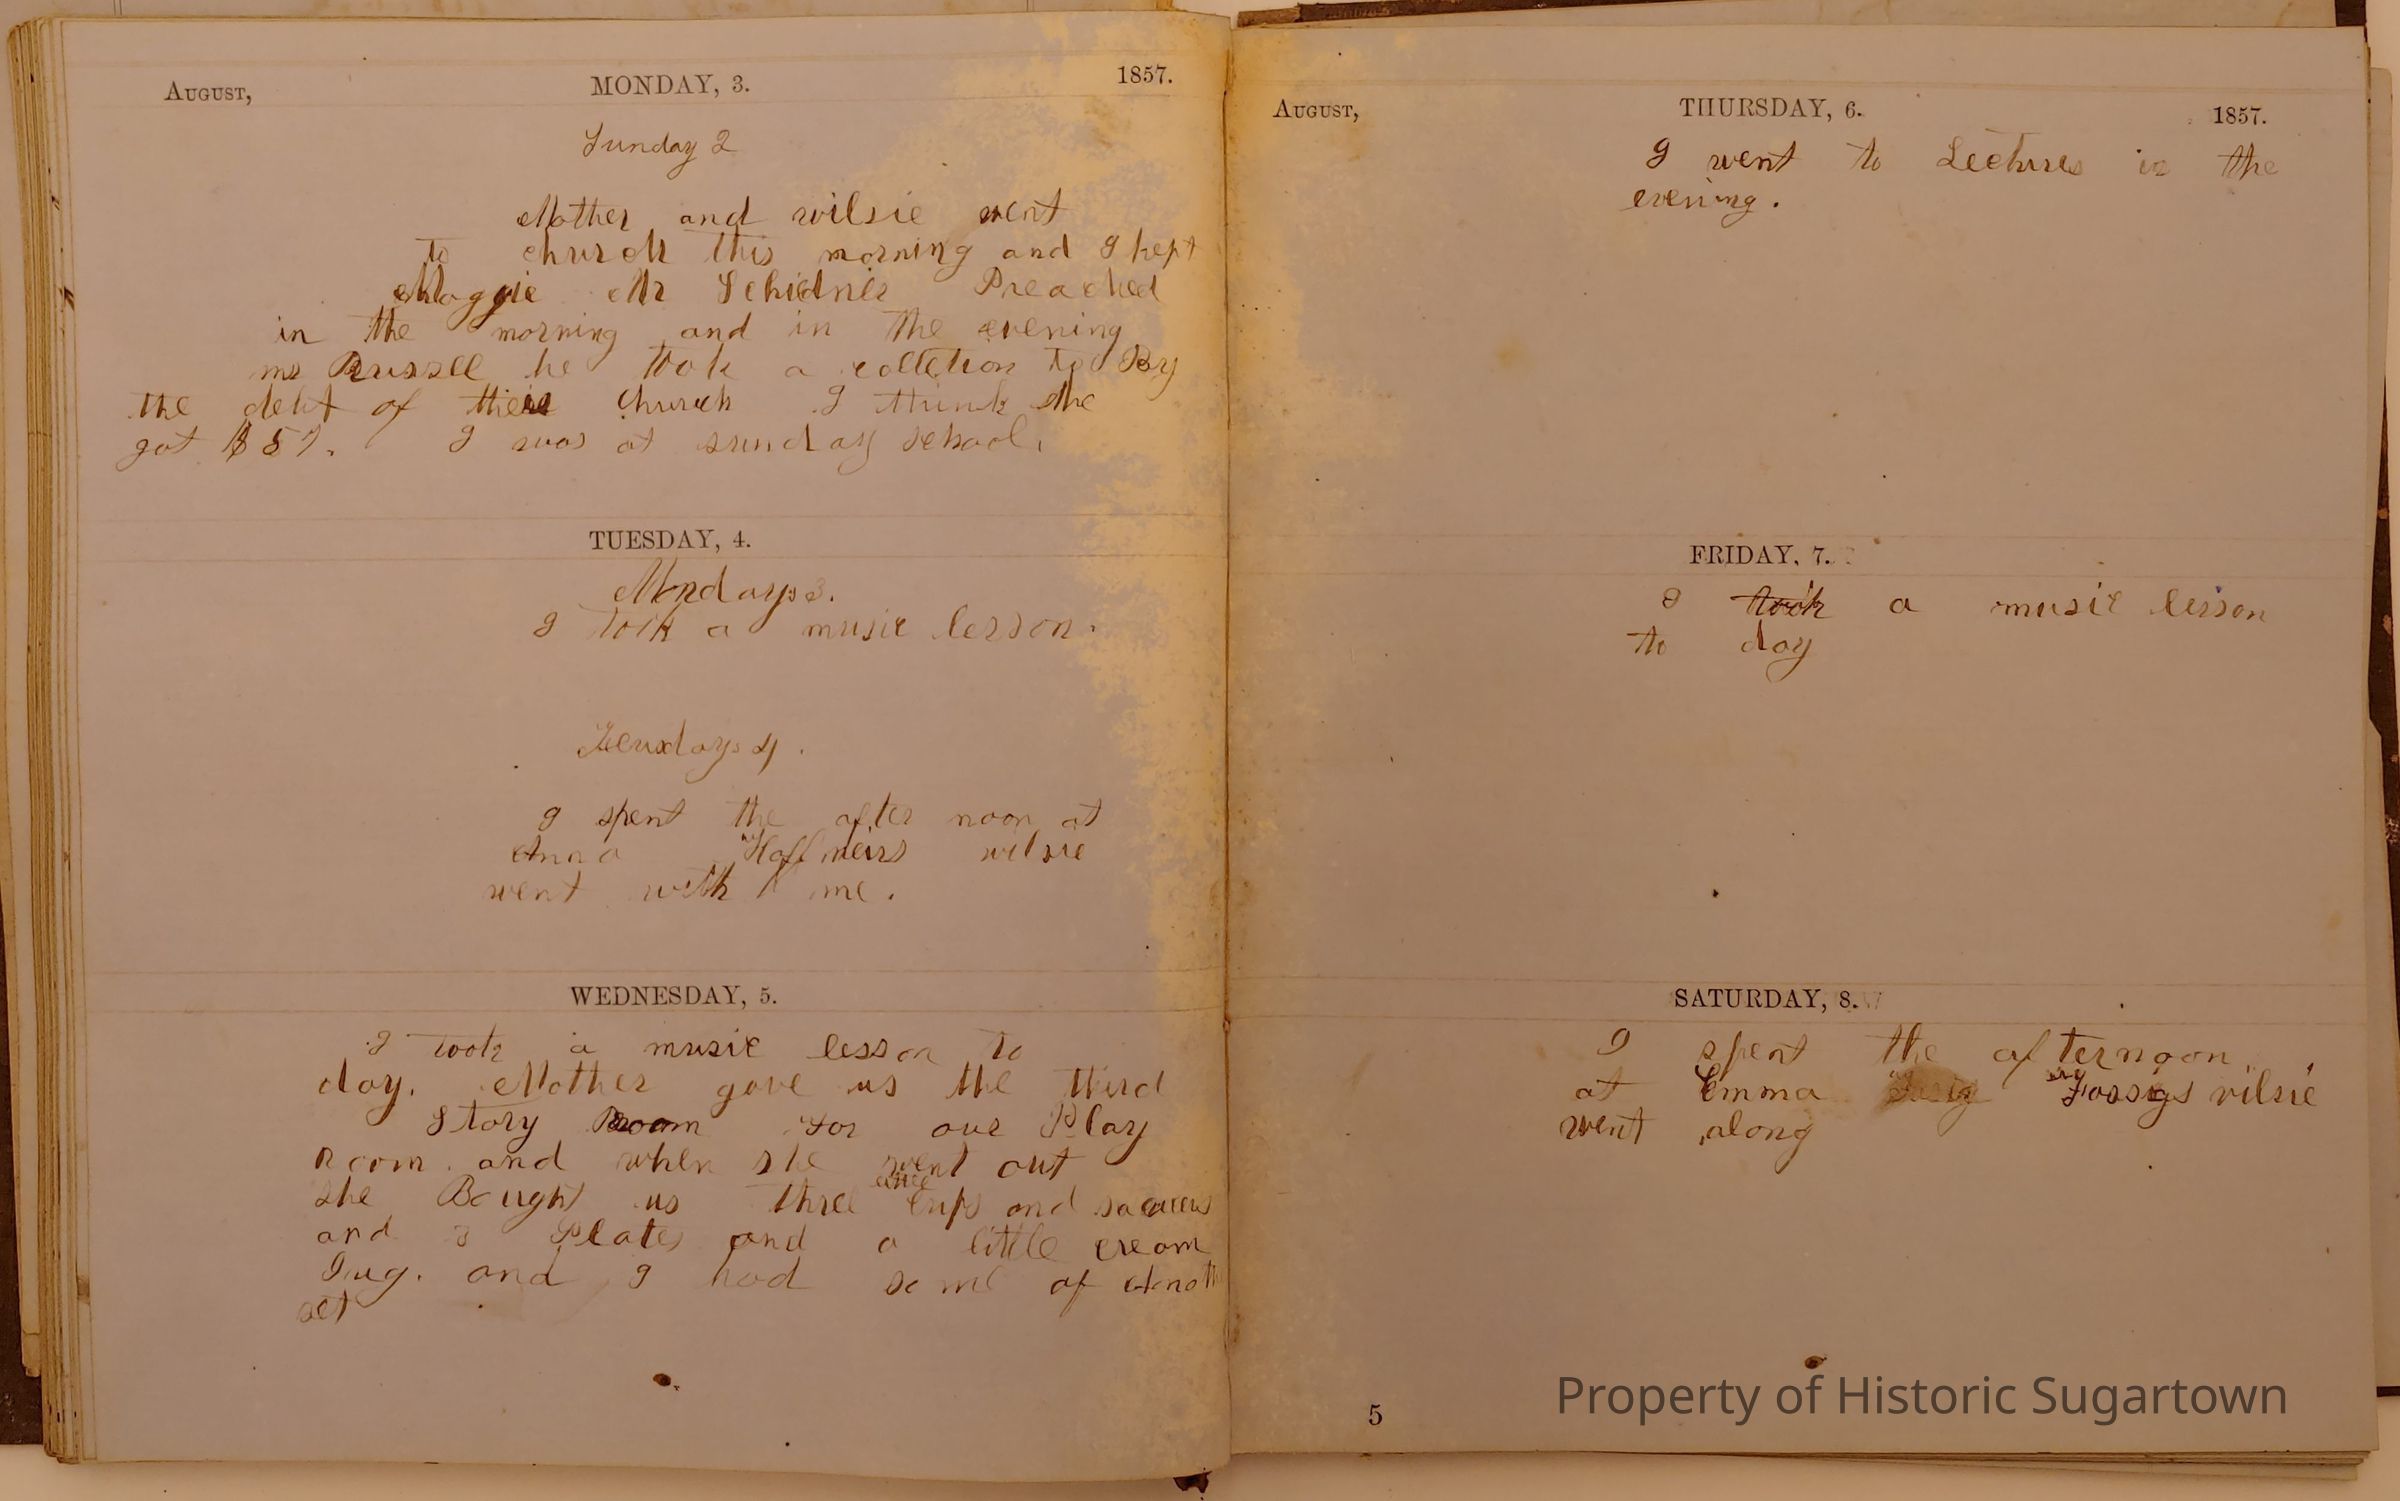 August, MONDAY, 3. 1857.
Sunday 2
Mother and wilsie went
to church this morning and I kept
Maggie Mr Preached
in the morning and in the evening
mr Russell he took a colletion to Pay
the debt of their church I think he
got $ 57. I was at sunday school.
TUESDAY, 4.
Monday 3.
I took a music lesson.
4.
I spent the after noon at
Anna Hoffmeirs wilsie
went with me.
WEDNESDAY, 5.
I took a music lesson to
day. Mother gave us the third
Story Room For our Play
Room and when she went out
she Bought us three cups and
and 3 Plates and a little cream
Jug. and I had some of
set
August, THURSDAY, 6. 1857.
I went to Lectures in the
evening.
FRIDAY, 7.
I took a music lesson
to day
SATURDAY, 8.
I spent the afternoon
at Emma Fossigs vilsie
went along
5
Property of Historic Sugartown